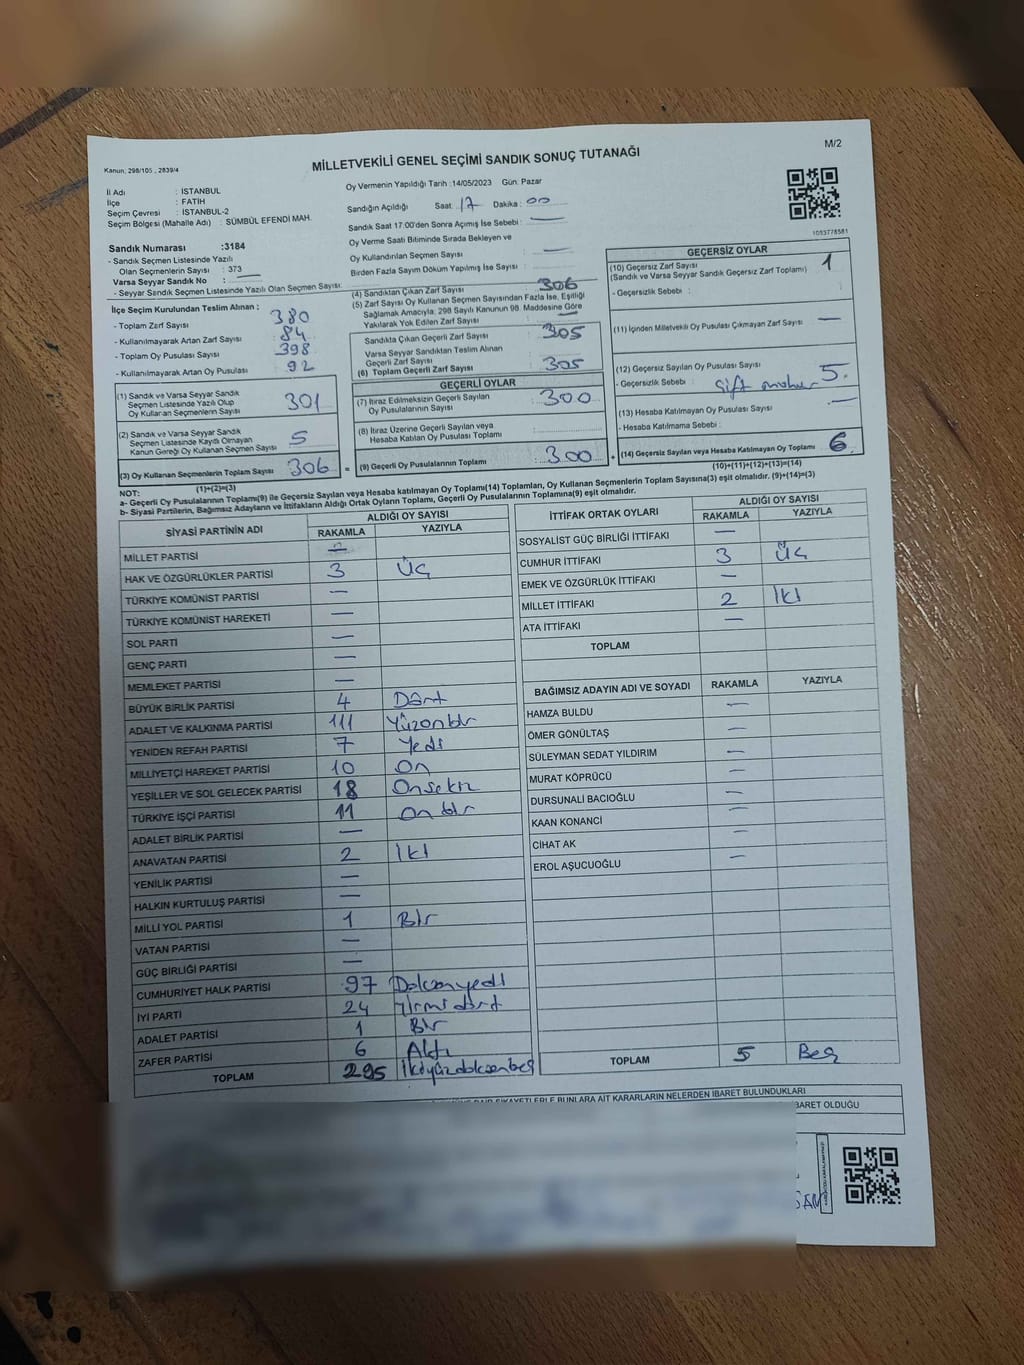 M/2
Kanun: 298/105 , 2839/4
MİLLETVEKİLİ GENEL SEÇİMİ SANDIK SONUÇ TUTANAĞI
İl Adı : İSTANBUL
İlçe : FATİH
Seçim Çevresi : İSTANBUL-2
Seçim Bölgesi (Mahalle Adı) : SÜMBÜL EFENDİ MAH.
Sandık Numarası :3184
- Sandık Seçmen Listesinde Yazılı
Olan Seçmenlerin Sayısı : 373
Varsa Seyyar Sandık No : —
- Seyyar Sandık Seçmen Listesinde Yazılı Olan Seçmen Sayısı:
Oy Vermenin Yapıldığı Tarih :14/05/2023 Gün: Pazar
Sandığın Açıldığı Saat: 17 Dakika : 00
Sandık Saat 17:00'den Sonra Açılmış İse Sebebi : —
Oy Verme Saati Bitiminde Sırada Bekleyen ve
Oy Kullandırılan Seçmen Sayısı : —
Birden Fazla Sayım Döküm Yapılmış İse Sayısı : —
1093778581
İlçe Seçim Kurulundan Teslim Alınan :
- Toplam Zarf Sayısı 380
- Kullanılmayarak Artan Zarf Sayısı 84
- Toplam Oy Pusulası Sayısı 398
- Kullanılmayarak Artan Oy Pusulası 92
(1) Sandık ve Varsa Seyyar Sandık
Seçmen Listesinde Yazılı Olup
Oy Kullanan Seçmenlerin Sayısı 301
(2) Sandık ve Varsa Seyyar Sandık
Seçmen Listesinde Kayıtlı Olmayan
Kanun Gereği Oy Kullanan Seçmen Sayısı 5
(3) Oy Kullanan Seçmenlerin Toplam Sayısı 306 =
(1)+(2)=(3)
(4) Sandıktan Çıkan Zarf Sayısı 306
(5) Zarf Sayısı Oy Kullanan Seçmen Sayısından Fazla İse, Eşitliği
Sağlamak Amacıyla; 298 Sayılı Kanunun 98. Maddesine Göre
Yakılarak Yok Edilen Zarf Sayısı —
Sandıkta Çıkan Geçerli Zarf Sayısı 305
Varsa Seyyar Sandıktan Teslim Alınan
Geçerli Zarf Sayısı
(6) Toplam Geçerli Zarf Sayısı 305
GEÇERLİ OYLAR
(7) İtiraz Edilmeksizin Geçerli Sayılan
Oy Pusulalarının Sayısı 300
(8) İtiraz Üzerine Geçerli Sayılan veya
Hesaba Katılan Oy Pusulası Toplamı
(9) Geçerli Oy Pusulalarının Toplamı 300 +
GEÇERSİZ OYLAR
(10) Geçersiz Zarf Sayısı 1
(Sandık ve Varsa Seyyar Sandık Geçersiz Zarf Toplamı)
- Geçersizlik Sebebi :
(11) İçinden Milletvekili Oy Pusulası Çıkmayan Zarf Sayısı —
(12) Geçersiz Sayılan Oy Pusulası Sayısı 5
- Geçersizlik Sebebi : Çift mühür
(13) Hesaba Katılmayan Oy Pusulası Sayısı —
- Hesaba Katılmama Sebebi :
(14) Geçersiz Sayılan veya Hesaba Katılmayan Oy Toplamı 6
(10)+(11)+(12)+(13)=(14)
NOT:
a- Geçerli Oy Pusulalarının Toplamı(9) ile Geçersiz Sayılan veya Hesaba katılmayan Oy Toplamı(14) Toplamları, Oy Kullanan Seçmenlerin Toplam Sayısına(3) eşit olmalıdır. (9)+(14)=(3)
b- Siyasi Partilerin, Bağımsız Adayların ve İttifakların Aldığı Ortak Oyların Toplamı, Geçerli Oy Pusulalarının Toplamına(9) eşit olmalıdır.
SİYASİ PARTİNİN ADI ALDIĞI OY SAYISI
RAKAMLA YAZIYLA
MİLLET PARTİSİ —
HAK VE ÖZGÜRLÜKLER PARTİSİ 3 Üç
TÜRKİYE KOMÜNİST PARTİSİ —
TÜRKİYE KOMÜNİST HAREKETİ —
SOL PARTİ —
GENÇ PARTİ —
MEMLEKET PARTİSİ —
BÜYÜK BİRLİK PARTİSİ 4 Dört
ADALET VE KALKINMA PARTİSİ 111 Yüzonbir
YENİDEN REFAH PARTİSİ 7 Yedi
MİLLİYETÇİ HAREKET PARTİSİ 10 On
YEŞİLLER VE SOL GELECEK PARTİSİ 18 Onsekiz
TÜRKİYE İŞÇİ PARTİSİ 11 Onbir
ADALET BİRLİK PARTİSİ —
ANAVATAN PARTİSİ 2 İki
YENİLİK PARTİSİ —
HALKIN KURTULUŞ PARTİSİ —
MİLLİ YOL PARTİSİ 1 Bir
VATAN PARTİSİ —
GÜÇ BİRLİĞİ PARTİSİ —
CUMHURİYET HALK PARTİSİ 97 Doksanyedi
İYİ PARTİ 24 Yirmidört
ADALET PARTİSİ 1 Bir
ZAFER PARTİSİ 6 Altı
TOPLAM 295 İkiyüzdoksanbeş
İTTİFAK ORTAK OYLARI ALDIĞI OY SAYISI
RAKAMLA YAZIYLA
SOSYALİST GÜÇ BİRLİĞİ İTTİFAKI —
CUMHUR İTTİFAKI 3 Üç
EMEK VE ÖZGÜRLÜK İTTİFAKI —
MİLLET İTTİFAKI 2 İki
ATA İTTİFAKI —
TOPLAM
BAĞIMSIZ ADAYIN ADI VE SOYADI RAKAMLA YAZIYLA
HAMZA BULDU —
ÖMER GÖNÜLTAŞ —
SÜLEYMAN SEDAT YILDIRIM —
MURAT KÖPRÜCÜ —
DURSUNALİ BACIOĞLU —
KAAN KONANCİ —
CİHAT AK —
EROL AŞUCUOĞLU —
TOPLAM 5 Beş
ŞİKAYETLERLE BUNLARA AİT KARARLARIN NELERDEN İBARET BULUNDUKLARI
BARET OLDUĞU